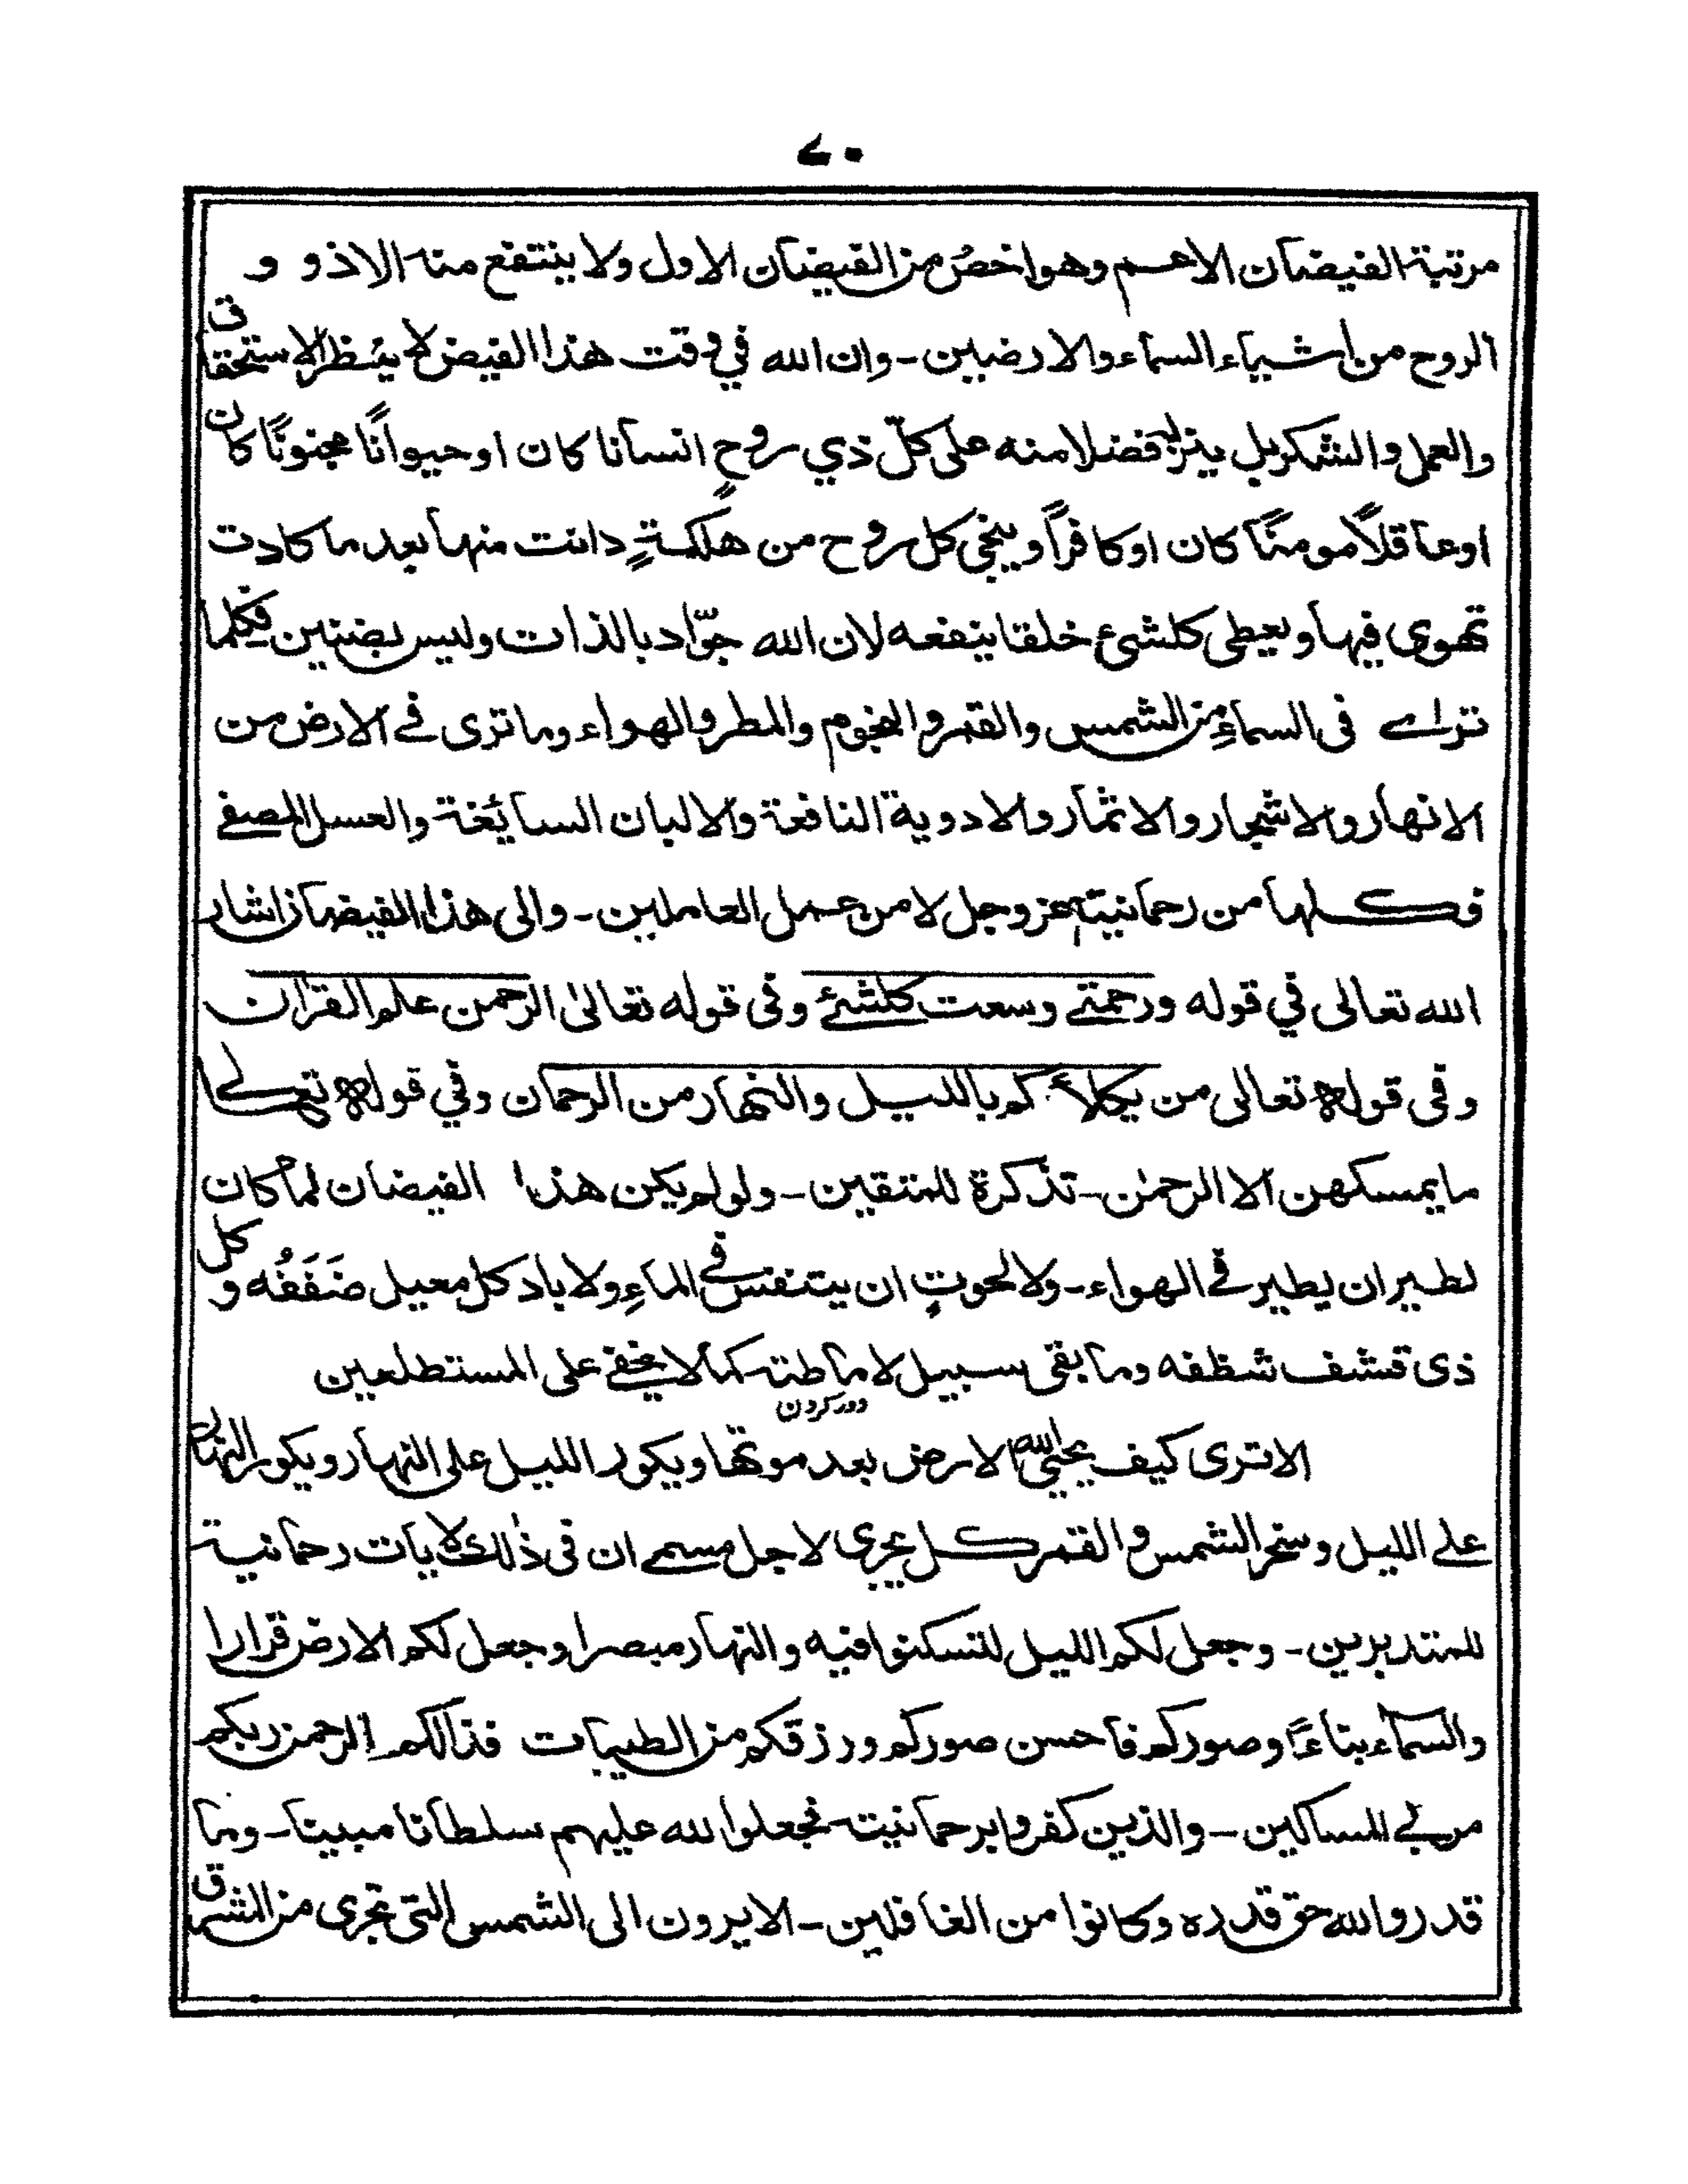 ۷۰
مرتبة الفيضان الاعم وهو اخص من الفيضان الاول ولا ينتفع منه الا ذو و
الروح من اشياء السماء والارضين - وان الله في وقت هذا الفيض لا ينظر الاستحقاق
والعمل والشكر بل ينزله فضلا منه على كلّ ذي روحٍ انسانا كان او حيوانًا مجنونًا كان
او عاقلاً مومنًا كان او كافراً وينجي كل روح من هلكةٍ دانت منها بعد ما كادت
تهوى فيها ويعطى كلشئ خلقا ينفعه لان الله جوّاد بالذات وليس بضنين فكلما
تراے فى السماءِ من الشمس والقمر والنجوم والمطر والهواء وما ترى فے الارض من
الانهار والاشجار والاثمار والادوية النافعة والالبان السائغة والعسل المصفے
فكلها من رحمانيته عز وجل لا من عمل العاملين - والى هذا الفيضان اشار
الله تعالى في قوله ورحمتے وسعت كلشئے وفى قوله تعالىٰ الرحمن علم القرآن
وفى قوله تعالى من يكلأكم بالليل والنهار من الرحمان وفي قوله تعالے
ما يمسكهن الا الرحمن - تذكرة للمتقين - ولو لم يكن هذا الفيضان لما كان
لطير ان يطير فے الهواء - ولا لحوتٍ ان يتنفس فے الماءِ ولا باد كل معيل ضَفَفُه و كل
ذى قشف شظفه وما بقى سبيل لاماطته كما لا يخفے على المستطلعين
دور كردن
الا ترى كيف يحيى الله الارض بعد موتها ويكور الليل على النهار ويكور النهار
علے الليل وسخر الشمس والقمر كل يجرى لاجل مسمے ان فى ذٰلك لايات رحمانية
للمتدبرين - وجعل لكم الليل لتسكنوا فيه والنهار مبصرا وجعل لكم الارض قرارا
والسماء بناءً وصوركم فاحسن صوركم ورزقكم من الطيبات فذالكم الرحمن ربكم
مربے للمساكين - والذين كفروا برحمانيته فجعلوا لله عليهم سلطانا مبينا - وما
قدروا الله حق قدره وكانوا من الغافلين - الا يرون الى الشمس التى تجرى من الشرق